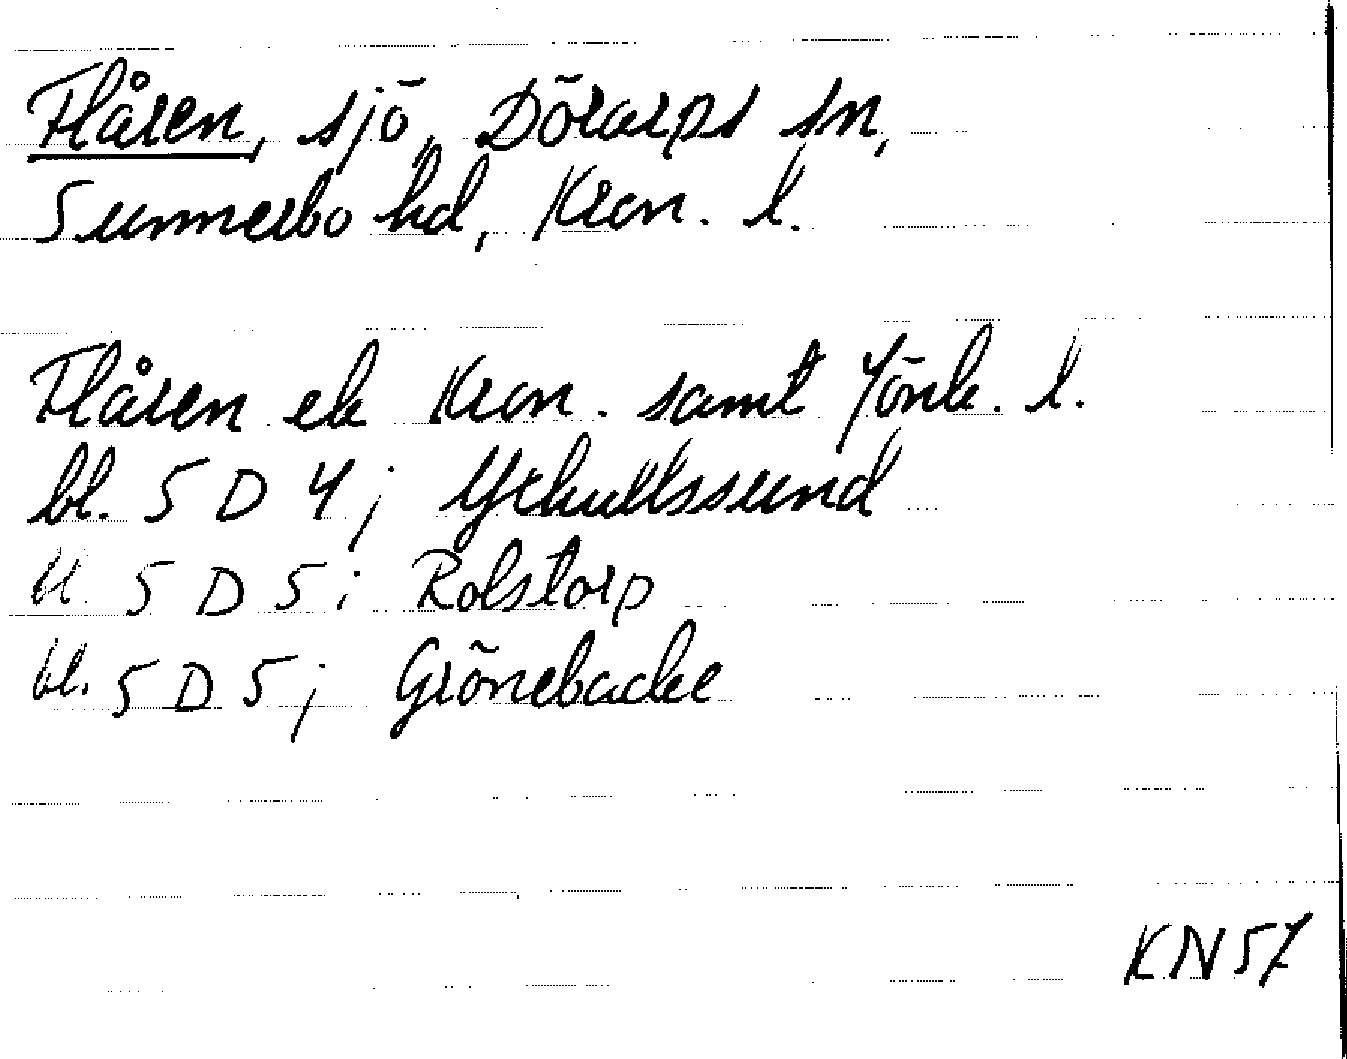 Flåren, sjö, Dörarps sn,
Sunnerbo hd, Kron. l.
Flåren ek Kron. samt Jönk. l.
bl. 5 D 4; Yxkullssund
bl. 5 D 5; Rolstorp
bl. 5 D 5; Grönebacke
KN57